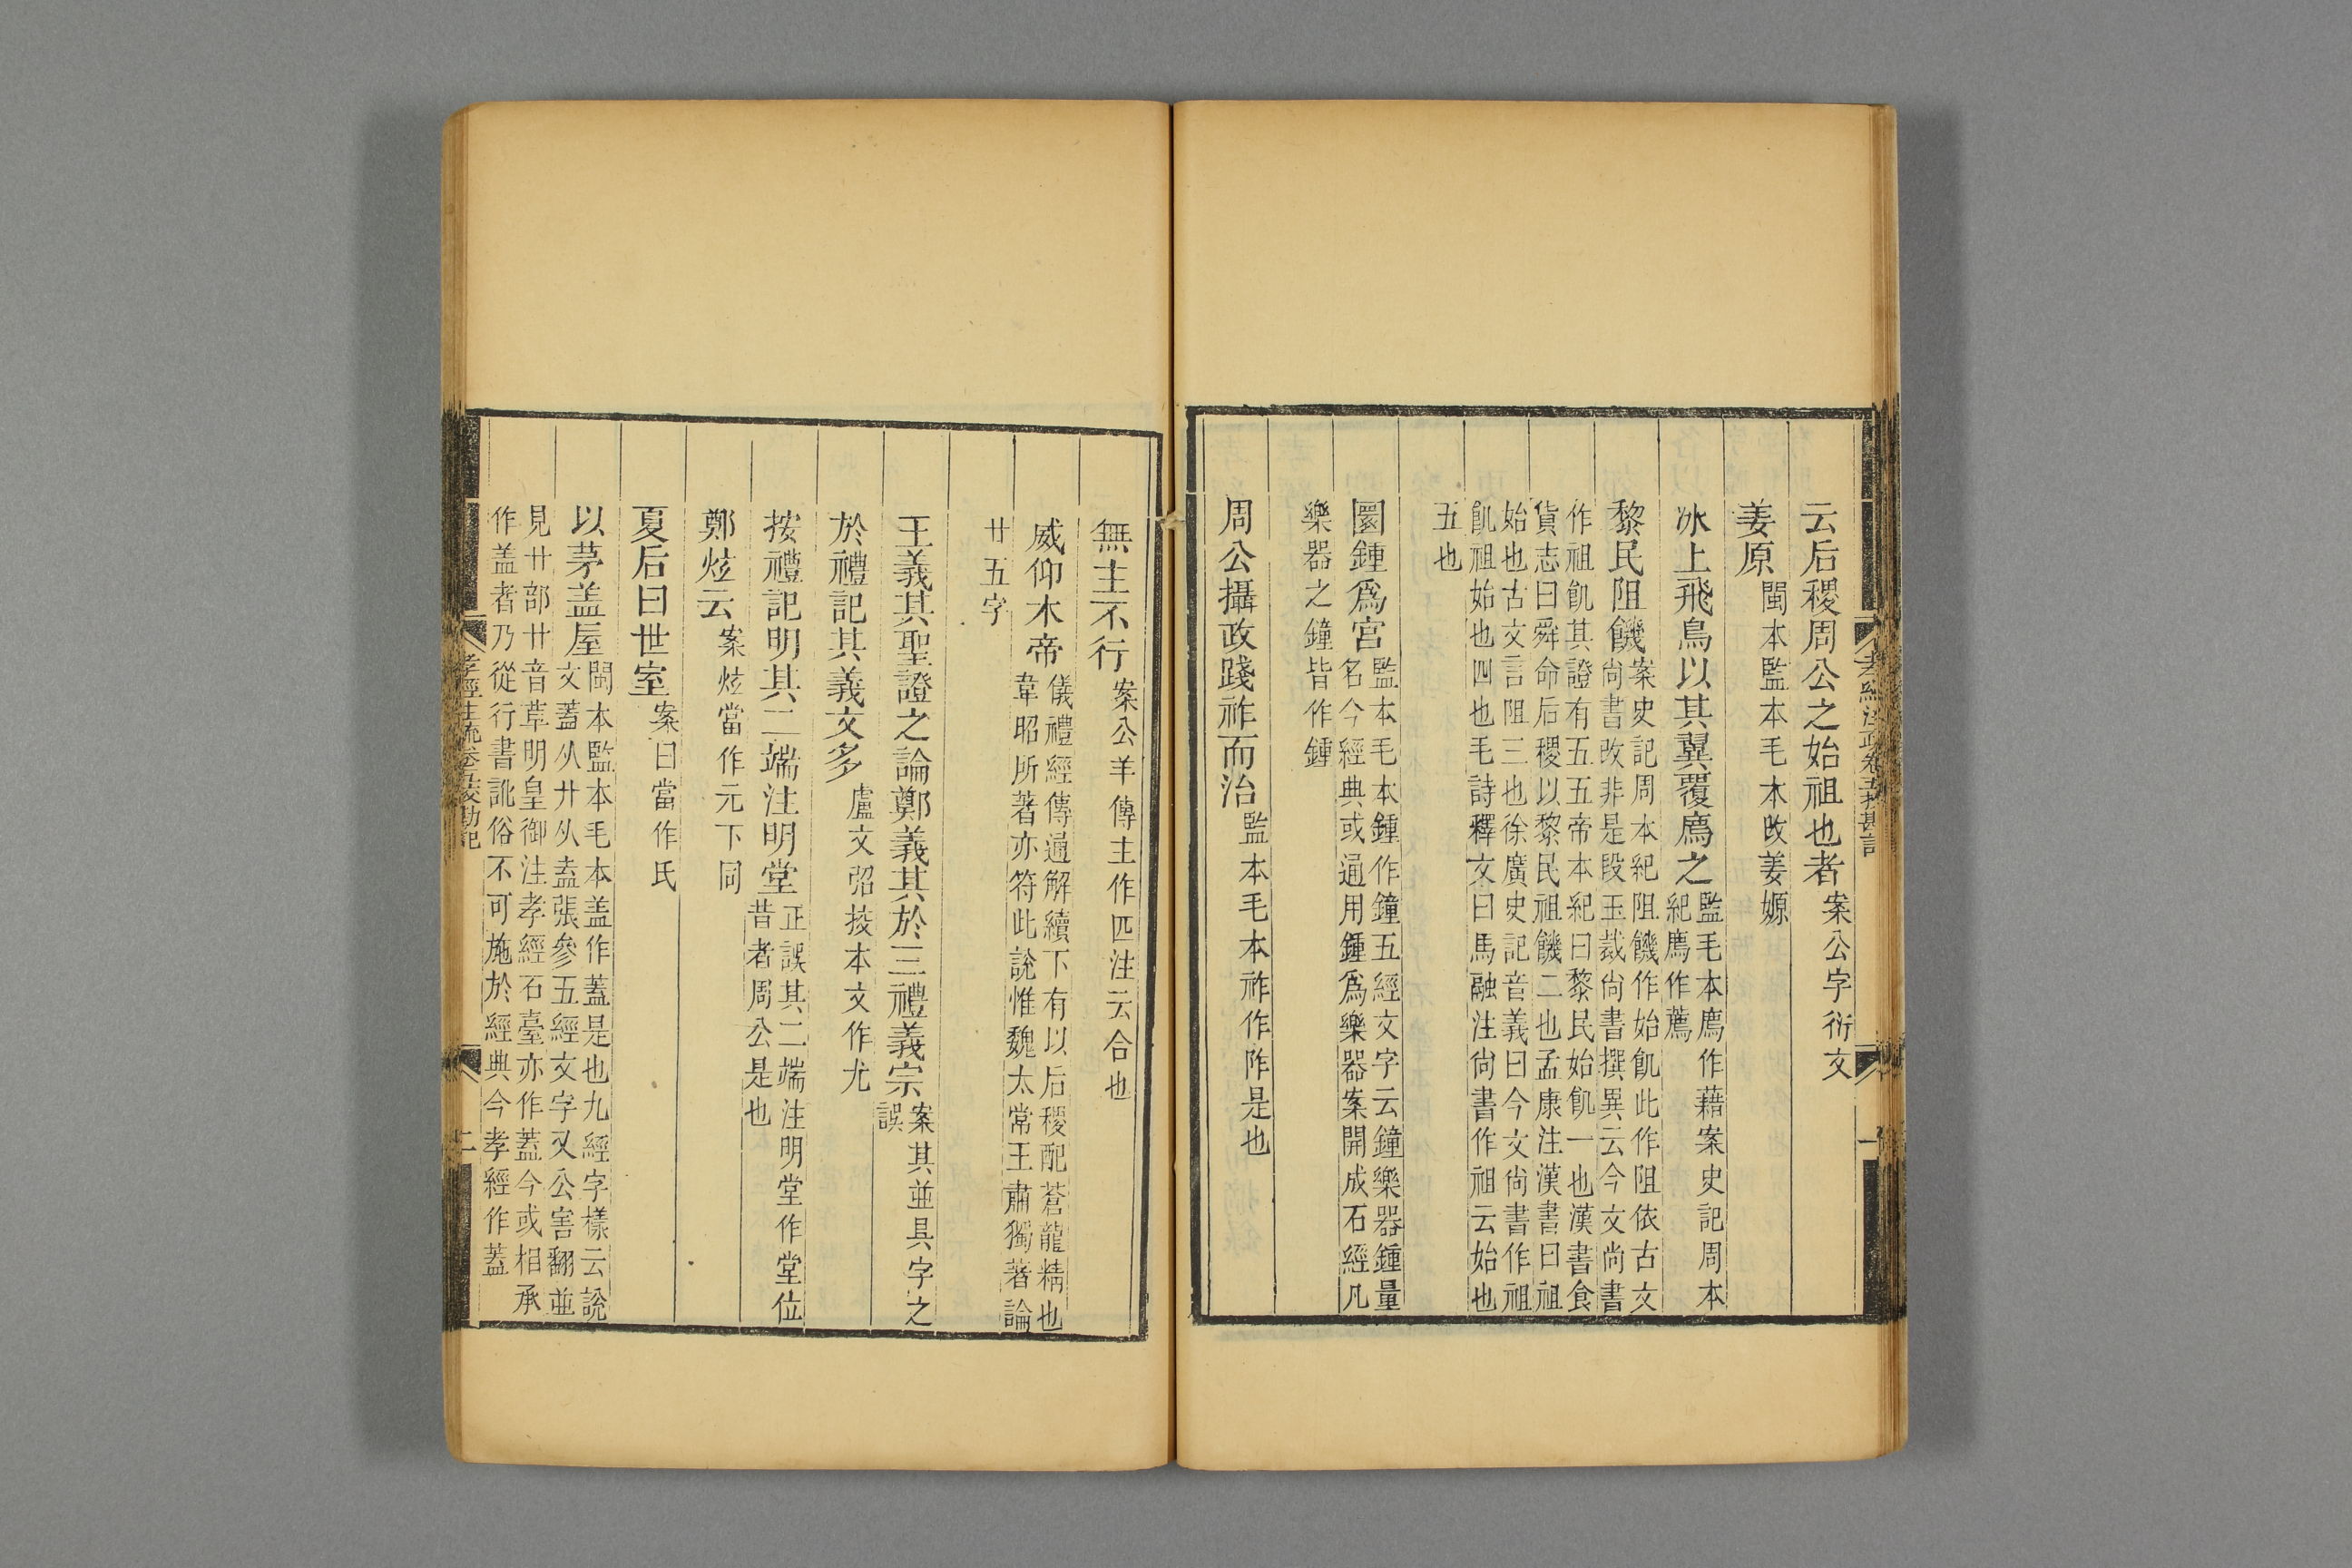 云后稷周公之始祖也者案公字衍文
姜原閩本監本毛本改姜嫄
冰上飛鳥以其翼覆廌之監毛本廌作藉案史記周本
紀廌作薦
黎民阻饑案史記周本紀阻饑作始飢此作阻依古文
尚書改非是段玉裁尚書撰異云今文尚書
作祖飢其證有五五帝本紀曰黎民始飢一也漢書食
貨志曰舜命后稷以黎民祖饑二也孟康注漢書曰祖
始也古文言阻三也徐廣史記音義曰今文尚書作祖
飢祖始也四也毛詩釋文曰馬融注尚書作祖云始也
五也
圜鍾爲宮監本毛本鍾作鐘五經文字云鐘樂器鍾量
名今經典或通用鍾爲樂器案開成石經凡
樂器之鐘皆作鍾
周公攝政踐祚而治監本毛本祚作阼是也
無主不行案公羊傳主作匹注云合也
威仰木帝儀禮經傳通解續下有以后稷配蒼龍精也
韋昭所著亦符此說惟魏太常王肅獨著論
廿五字
王義其聖證之論鄭義其於三禮義宗案其並具字之
誤
於禮記其義文多盧文弨挍本文作尤
按禮記明其二端注明堂正誤其二端注明堂作堂位
昔者周公是也
鄭炫云案炫當作元下同
夏后曰世室案曰當作氏
以茅盖屋閩本監本毛本盖作蓋是也九經字樣云說
文蓋从廾从盍張參五經文字又公害翻並
見廾部廾音草明皇御注孝經石臺亦作蓋今或相承
作盖者乃從行書訛俗不可施於經典今孝經作蓋
孝經注疏卷五挍勘記
二